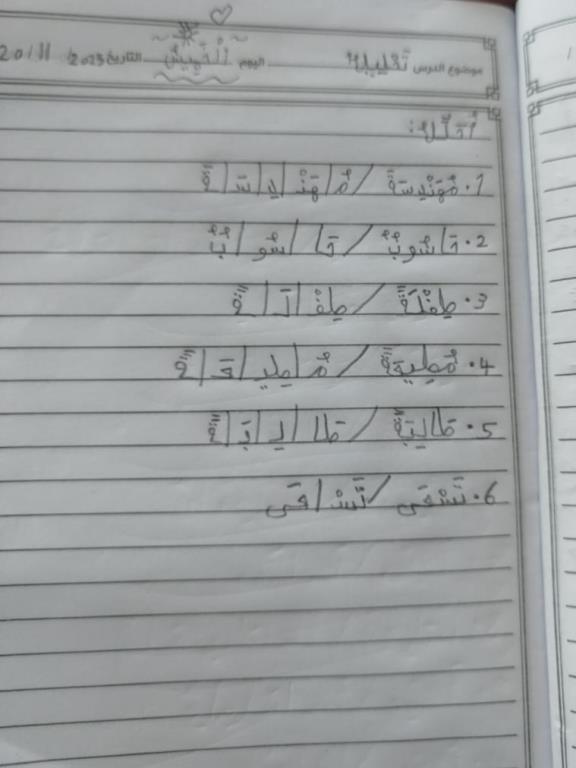 موضوع الدرس اليوم الْخَمِيسُ التاريخ 2023/ 11/ 20
أُحَلِّلُ:
1. مُهَنْدِسَةٌ / مُ | هَنْ | دِ | سَ | ةٌ
2. حَاسُوبٌ / حَا | سُو | بٌ
3. طِفْلَةً / طِفْ | لَ | ةً
4. مُطِيعَةً / مُ | طِيـ | عَـ | ةً
5. طَالِبَةً / طَا | لِـ | بَـ | ةً
6. تَسْعَى / تَسْ | عَى